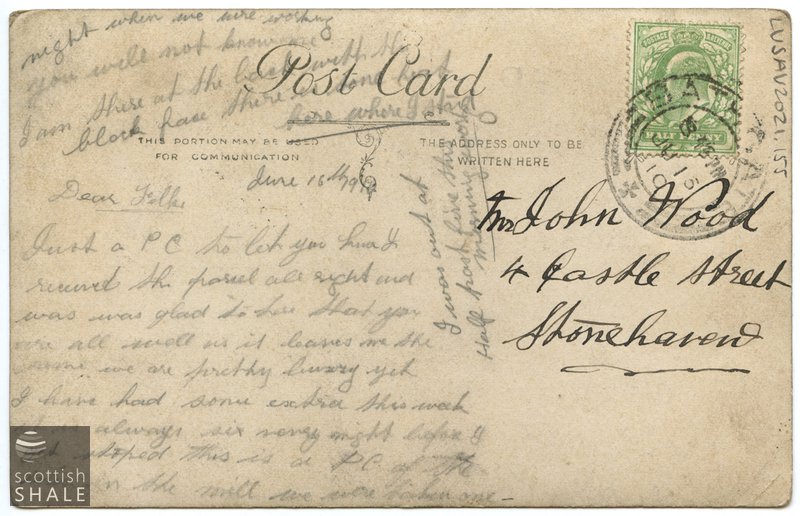 Post Card
THIS PORTION MAY BE USED
FOR COMMUNICATION
THE ADDRESS ONLY TO BE
WRITTEN HERE
POSTAGE REVENUE
HALFPENNY
BATHGATE
JU 15
10
LVSAV2021.155
Mr John Wood
4 Castle Street
Stonehaven
June 15th 1910
Dear
Just a P C to let you know I
received the parcel all right and
was was glad to hear that you
are all well as it leaves me the
same we are pretty busy yet
I have had some extra this week
always six seven night before I
stoped this is a P C of the
in the mill we were taken one
night when we were working
you will not know me
I am there at the back with the
black face there
here where I stay
I was out at
Half past five this
morning
scottish
SHALE